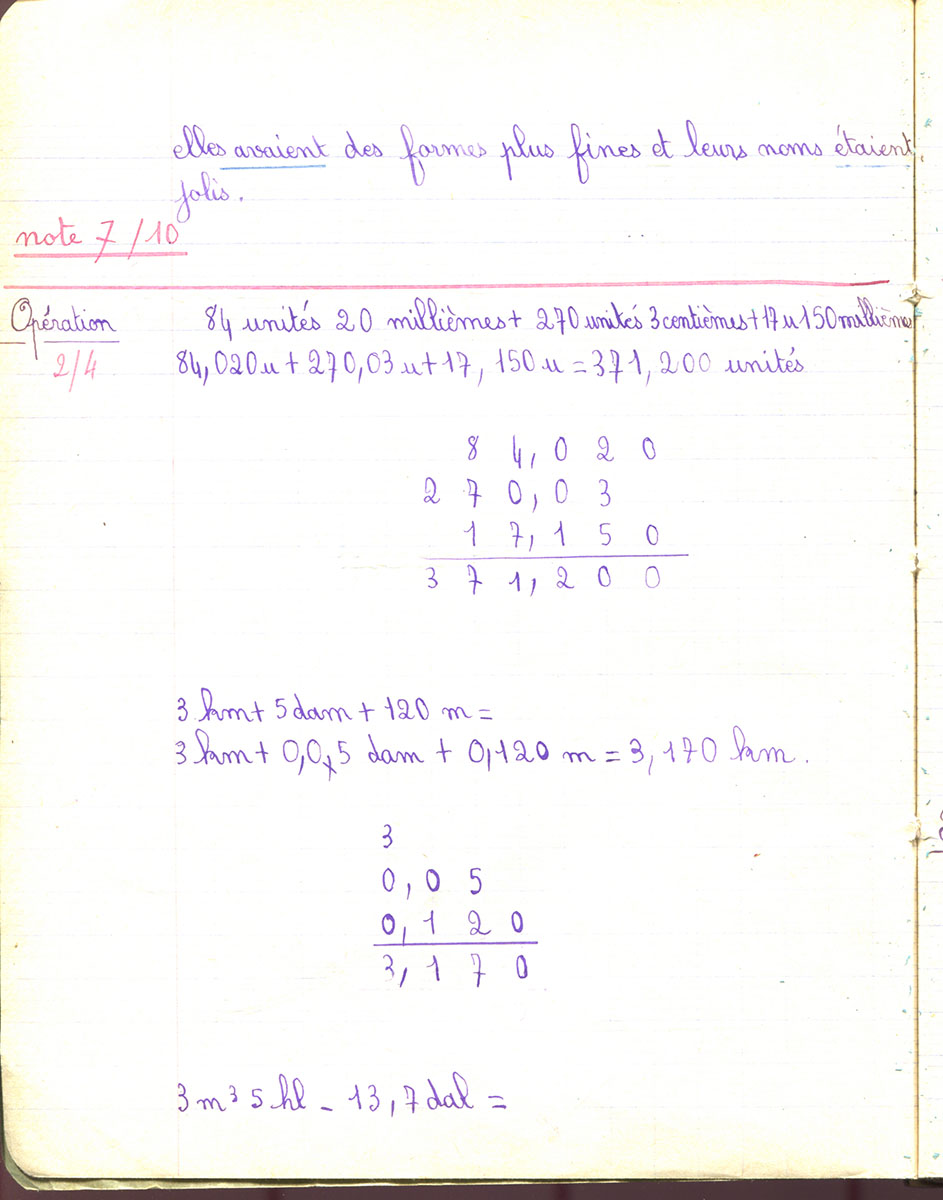 elles avaient des formes plus fines et leurs noms étaient
jolis.
note 7/10
Opération
2/4
84 unités 20 millièmes + 270 unités 3 centièmes + 17 u 150 millièmes
84,020 u + 270,03 u + 17,150 u = 371,200 unités
8 4, 0 2 0
2 7 0, 0 3
1 7, 1 5 0
3 7 1, 2 0 0
3 km + 5 dam + 120 m =
3 km + 0,0,5 dam + 0,120 m = 3,170 km.
3
0, 0 5
0, 1 2 0
3, 1 7 0
3 m³ 5 hl - 13,7 dal =